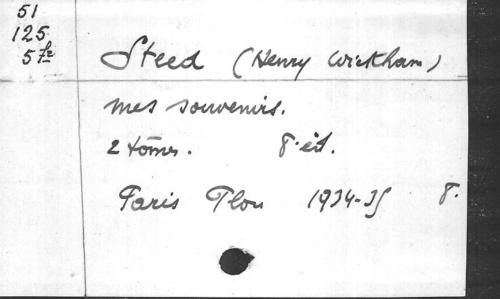 51
125
5
Steed (Henry Wickham)
mes souvenirs.
2 tomes. 8 éd.
Paris Plon 1934-35 8.